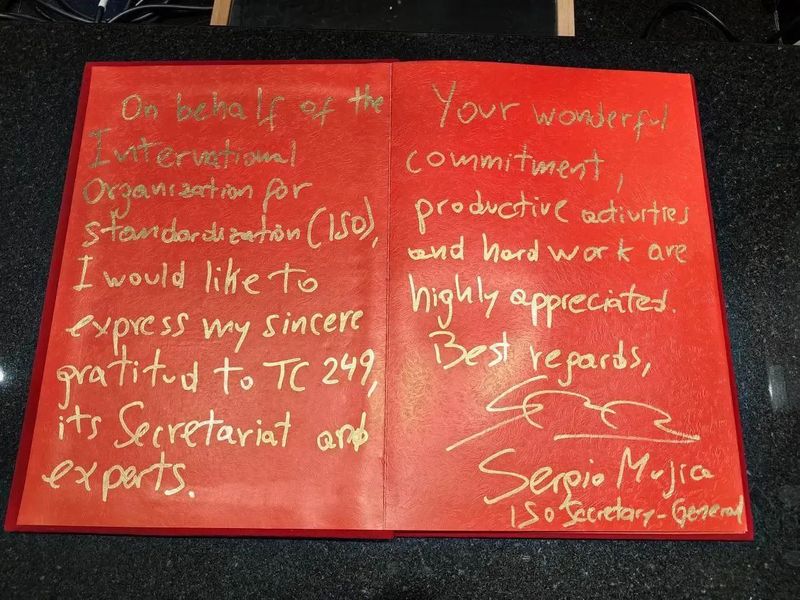 On behalf of the
International
Organization for
standardization (ISO),
I would like to
express my sincere
gratitud to TC 249,
its Secretariat and
experts.
Your wonderful
commitment,
productive activities
and hard work are
highly appreciated.
Best regards,
Sergio Mujica
ISO Secretary-General